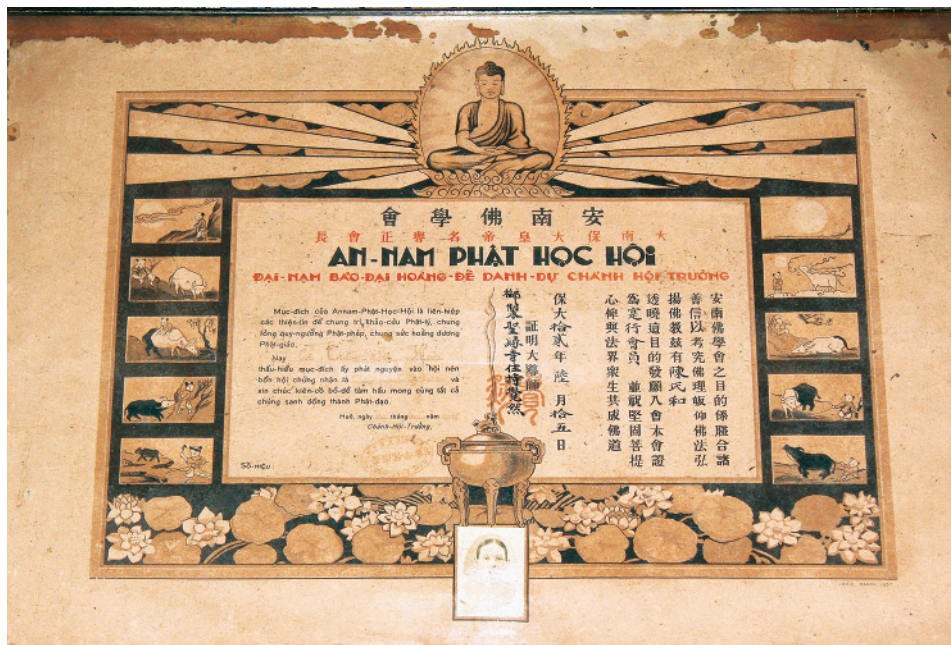 安南佛學會
大南保大皇帝名譽正會長
AN-NAM PHẬT HỌC HỘI
ĐẠI-NAM BẢO-ĐẠI HOÀNG-ĐẾ DANH-DỰ CHÁNH HỘI TRƯỞNG
Mục-đích của Annam-Phật-Học-Hội là liên-hiệp
các thiện-tín để chung trí khảo-cứu Phật-lý, chung
lòng quy-ngưỡng Phật-pháp, chung sức hoằng dương
Phật-giáo.
Nay
thấu-hiểu mục-đích ấy phát nguyện vào hội nên
bổn hội chứng nhận là và
xin chúc kiên-cố bồ-đề tâm hầu mong cùng tất cả
chúng sanh đồng thành Phật-đạo.
Huế, ngày tháng năm
Chánh-Hội-Trưởng,
SỐ-HIỆU:
安南佛學會之目的係合諸
善信以考究佛理皈仰佛法弘
揚佛教茲有陳氏和
透曉這目的發願入會本會證
爲寔行會員 並祝堅固菩提
心伸與法界眾生共成佛道
保大拾貳年陸月拾五日
証明大導師
御製聖緣寺住持覺然